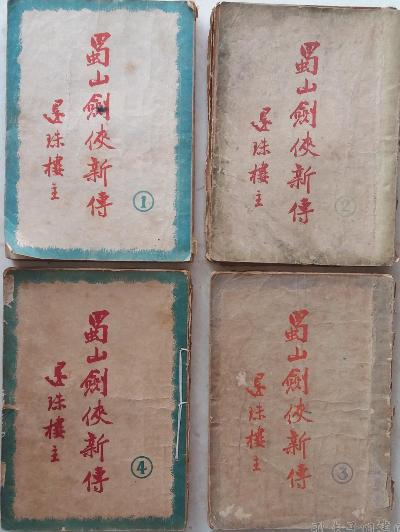 蜀山劍俠新傳
還珠樓主
①
蜀山劍俠新傳
還珠樓主
②
蜀山劍俠新傳
還珠樓主
④
蜀山劍俠新傳
還珠樓主
③